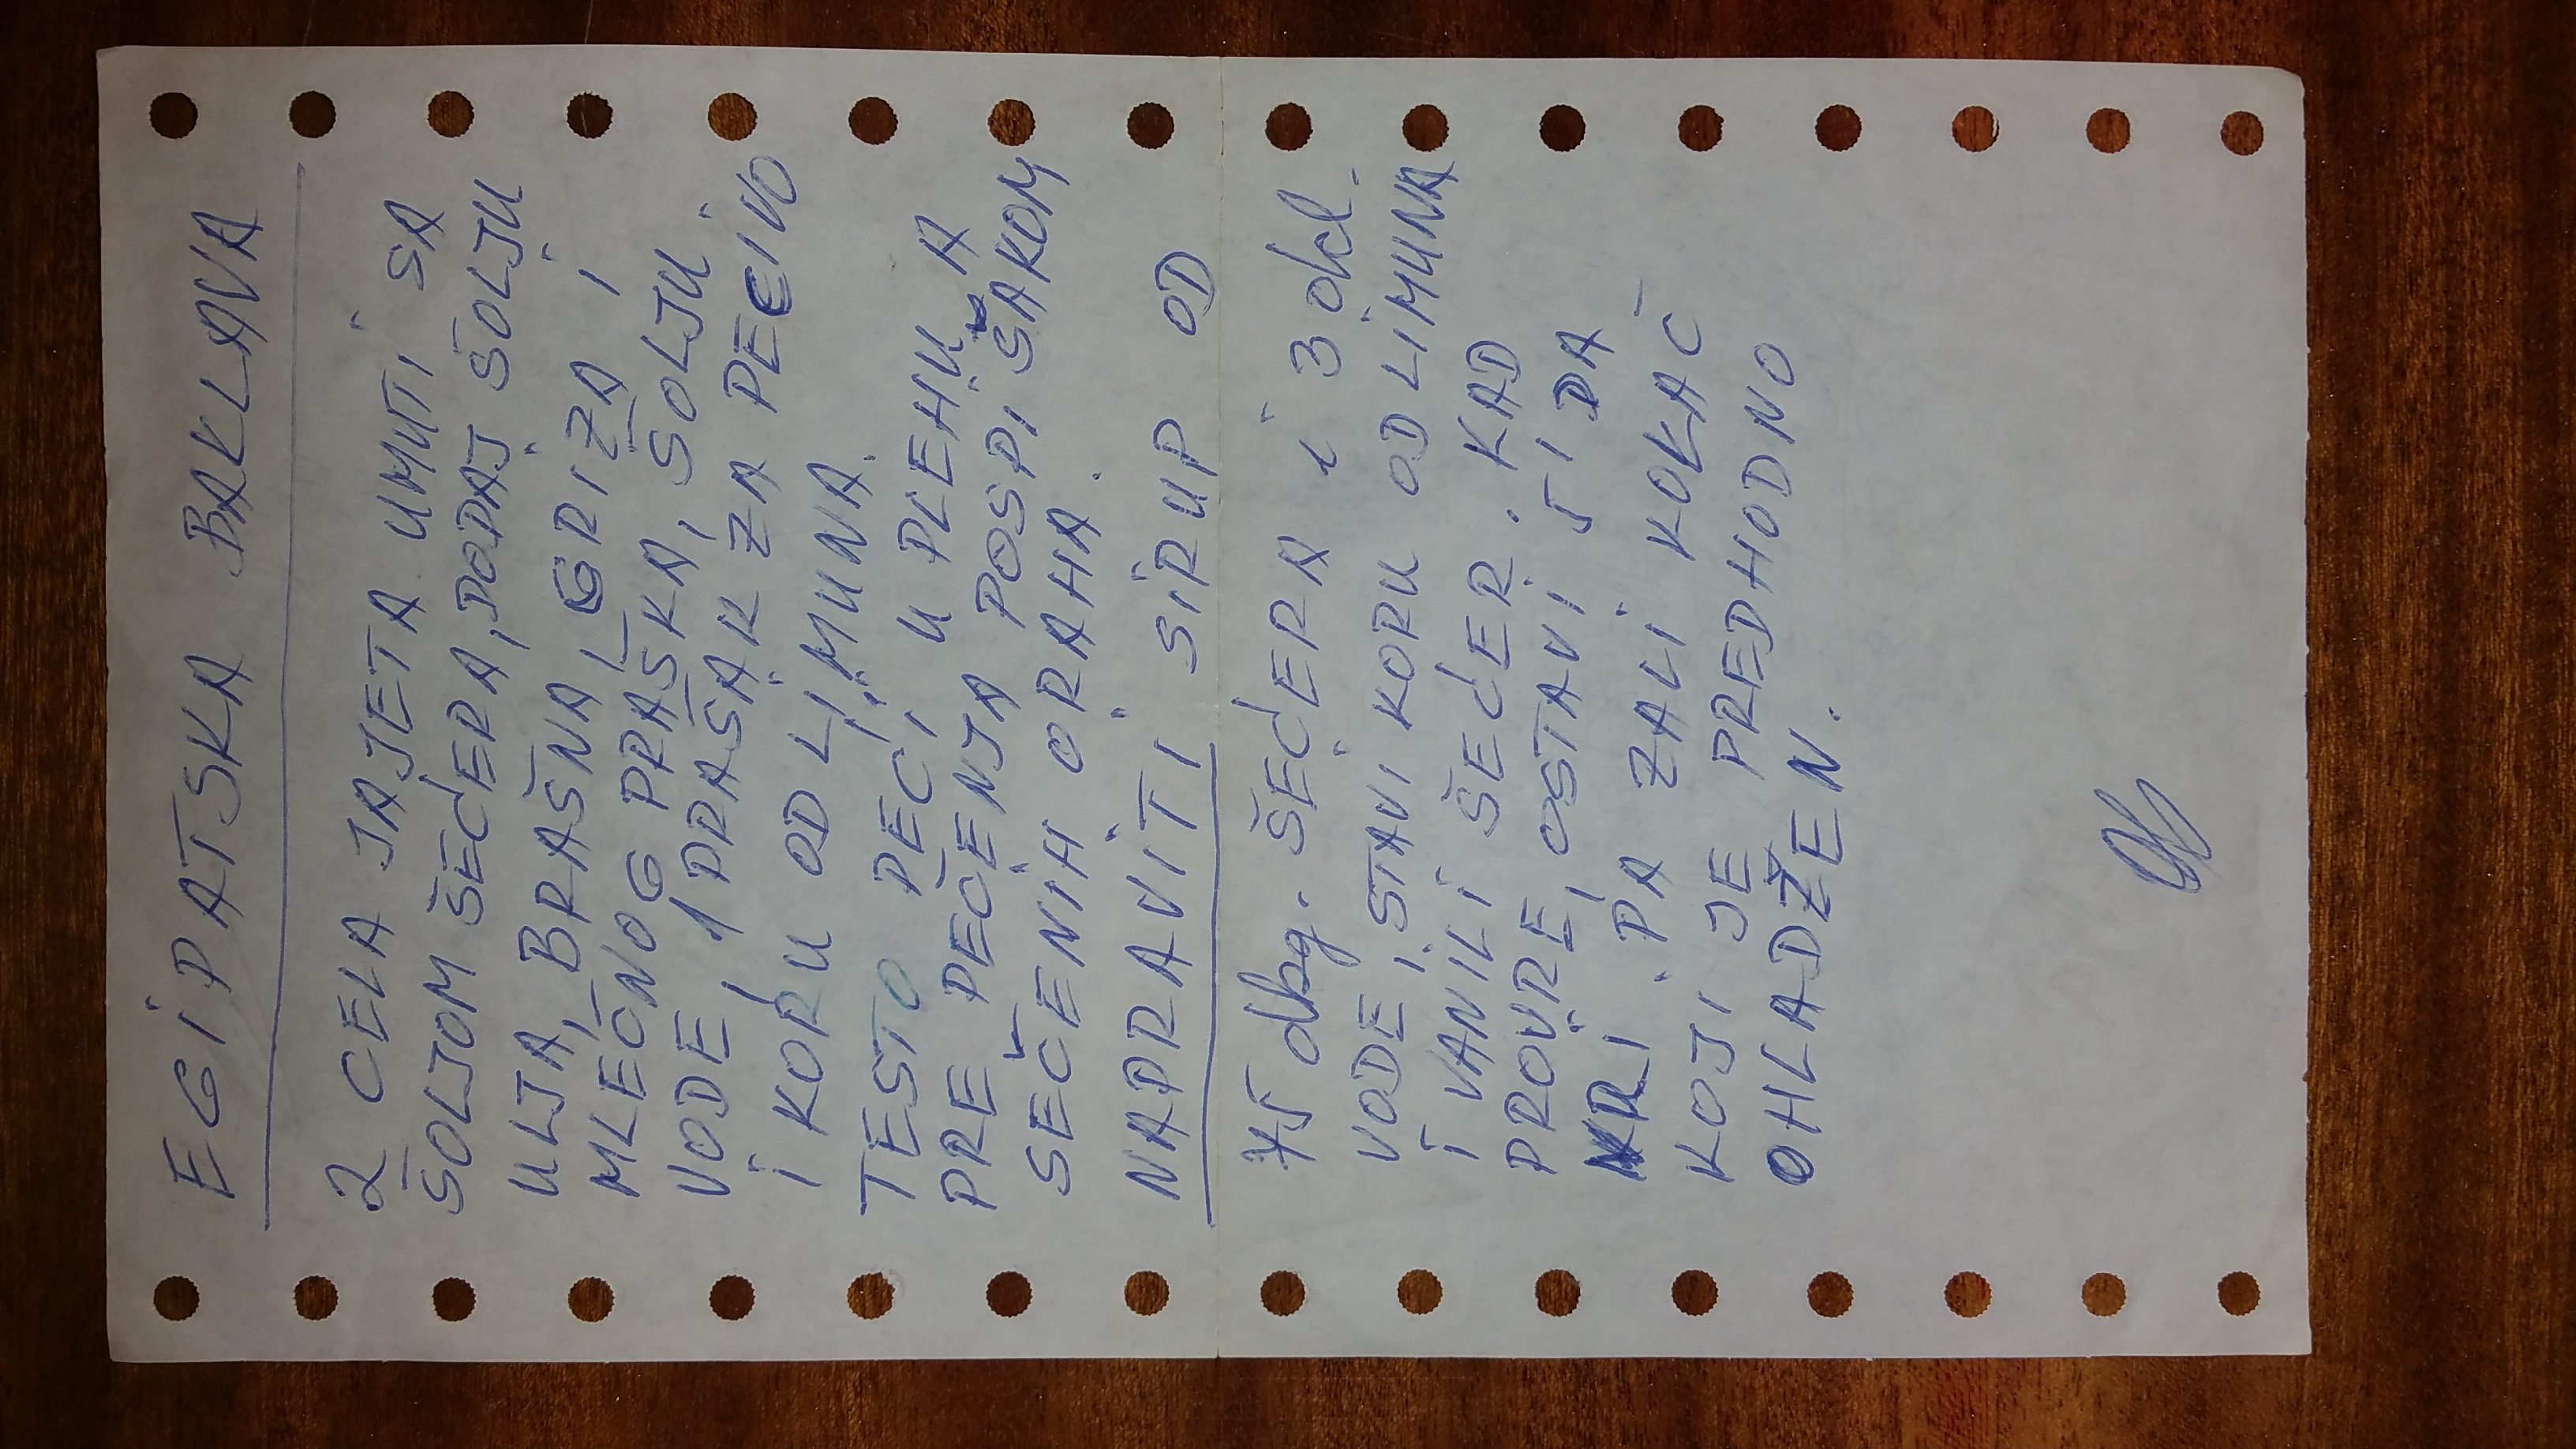 EGIPATSKA BAKLAVA
2 CELA JAJETA UMUTI SA
ŠOLJOM ŠEĆERA, DODAJ ŠOLJU
ULJA, BRAŠNA, GRIZA I
MLEČNOG PRAŠKA, ŠOLJU
VODE, 1 PRAŠAK ZA PECIVO
I KORU OD LIMUNA.
TESTO PEĆI U PLEHU, A
PRE PEČENJA POSPI ŠAKOM
SEČENIH ORAHA.
NAPRAVITI SIRUP OD
75 dkg. ŠEĆERA i 3 dcl.
VODE, STAVI KORU OD LIMUNA
I VANILI ŠEĆER. KAD
PROVRE, OSTAVI 5' DA
VRI. PA ZALI KOLAČ
KOJI JE PREDHODNO
OHLADŽEN.